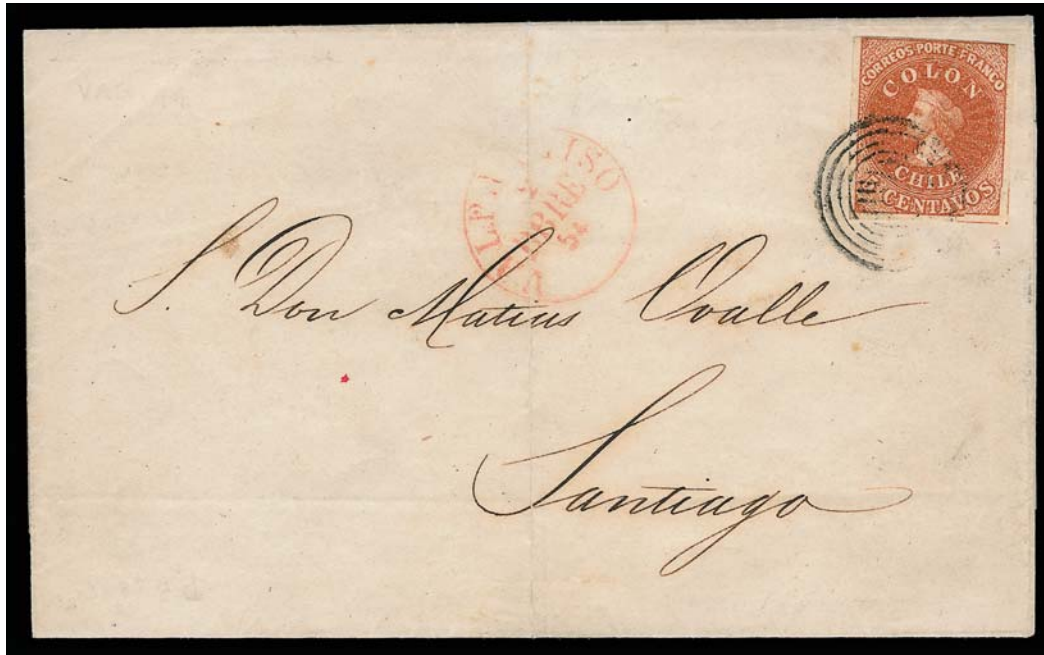 CORREOS PORTE FRANCO
COLON
CHILE
CENTAVOS
54
S. Don Matias Ovalle
Santiago